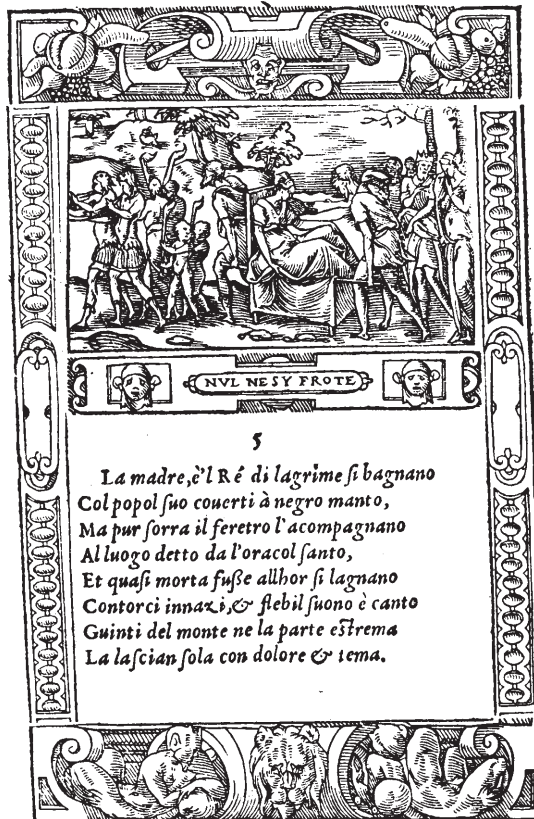 NVL NE SY FROTE
5
La madre, è'l Ré di lagrime ſi bagnano
Col popol ſuo couerti à negro manto,
Ma pur ſorra il feretro l'acompagnano
Al luogo detto da l'oracol ſanto,
Et quaſi morta fuſſe allhor ſi lagnano
Contorci innazi, & flebil ſuono è canto
Guinti del monte ne la parte eſtrema
La laſcian ſola con dolore & tema.